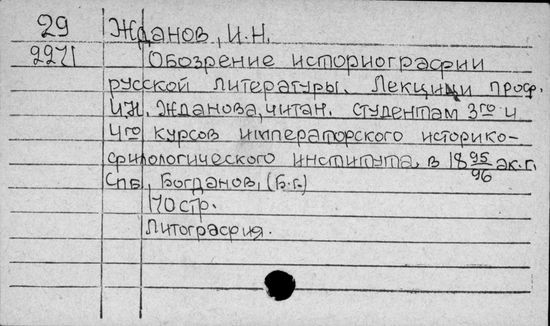 29 Жданов, И.Н.
2271 Обозрение историографии
русской литературы. Лекции проф.
И.Н. Жданова, читан. студентам 3го и
4го курсов императорского историко-
филологического института, в 18 95/96 ак. г.
Спб, Богданов, (Б.г.)
170 стр.
Литография.